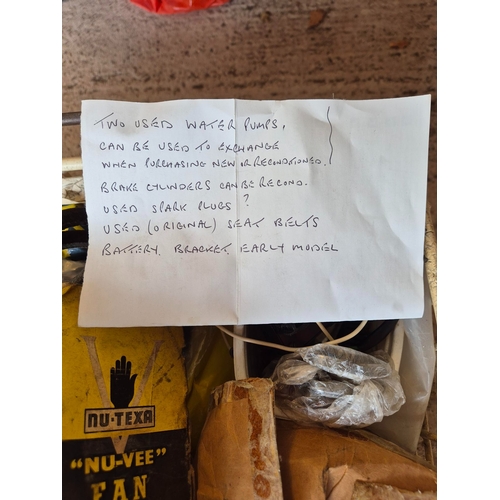 TWO USED WATER PUMPS,
CAN BE USED TO EXCHANGE
WHEN PURCHASING NEW OR RECONDITIONED.
BRAKE CYLINDERS CAN BE RECOND.
USED SPARK PLUGS ?
USED (ORIGINAL) SEAT BELTS
BATTERY, BRACKET, EARLY MODEL
NU-TEXA
"NU-VEE"
FAN